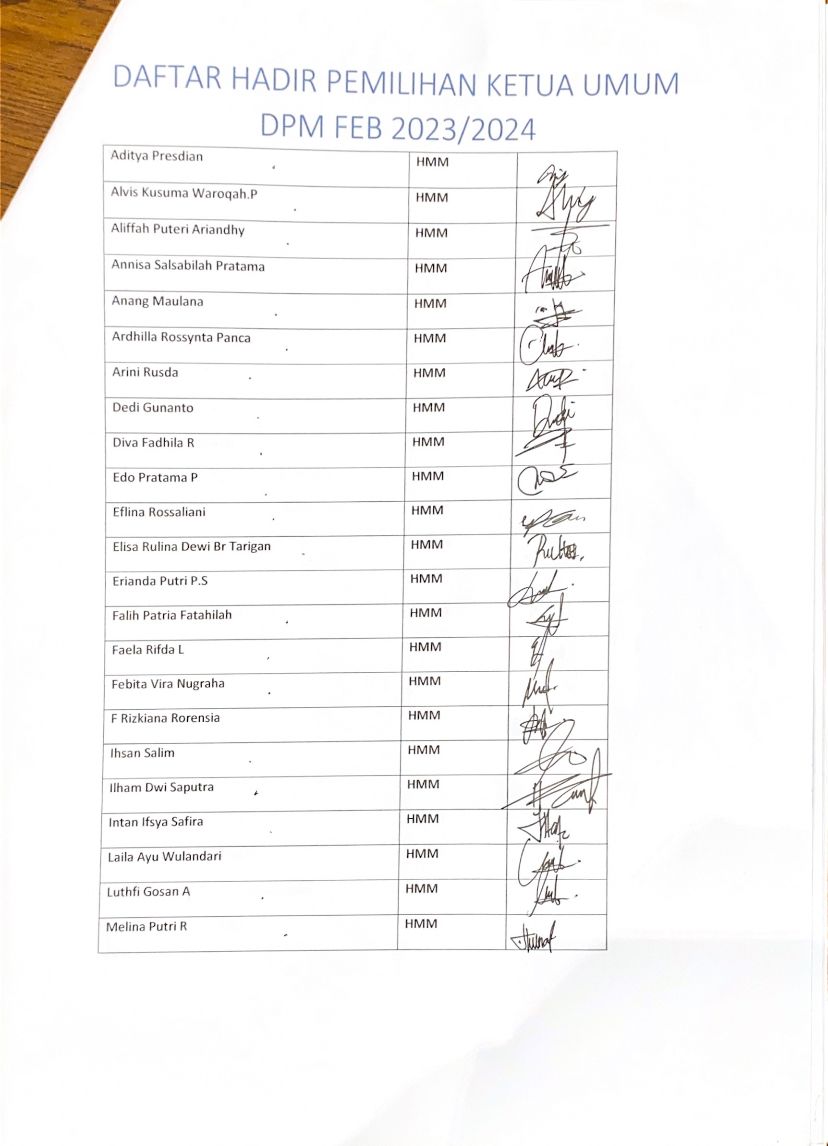 DAFTAR HADIR PEMILIHAN KETUA UMUM
DPM FEB 2023/2024
Aditya Presdian HMM
Alvis Kusuma Waroqah.P HMM
Aliffah Puteri Ariandhy HMM
Annisa Salsabilah Pratama HMM
Anang Maulana HMM
Ardhilla Rossynta Panca HMM
Arini Rusda HMM
Dedi Gunanto HMM
Diva Fadhila R HMM
Edo Pratama P HMM
Eflina Rossaliani HMM
Elisa Rulina Dewi Br Tarigan HMM
Erianda Putri P.S HMM
Falih Patria Fatahilah HMM
Faela Rifda L HMM
Febita Vira Nugraha HMM
F Rizkiana Rorensia HMM
Ihsan Salim HMM
Ilham Dwi Saputra HMM
Intan Ifsya Safira HMM
Laila Ayu Wulandari HMM
Luthfi Gosan A HMM
Melina Putri R HMM